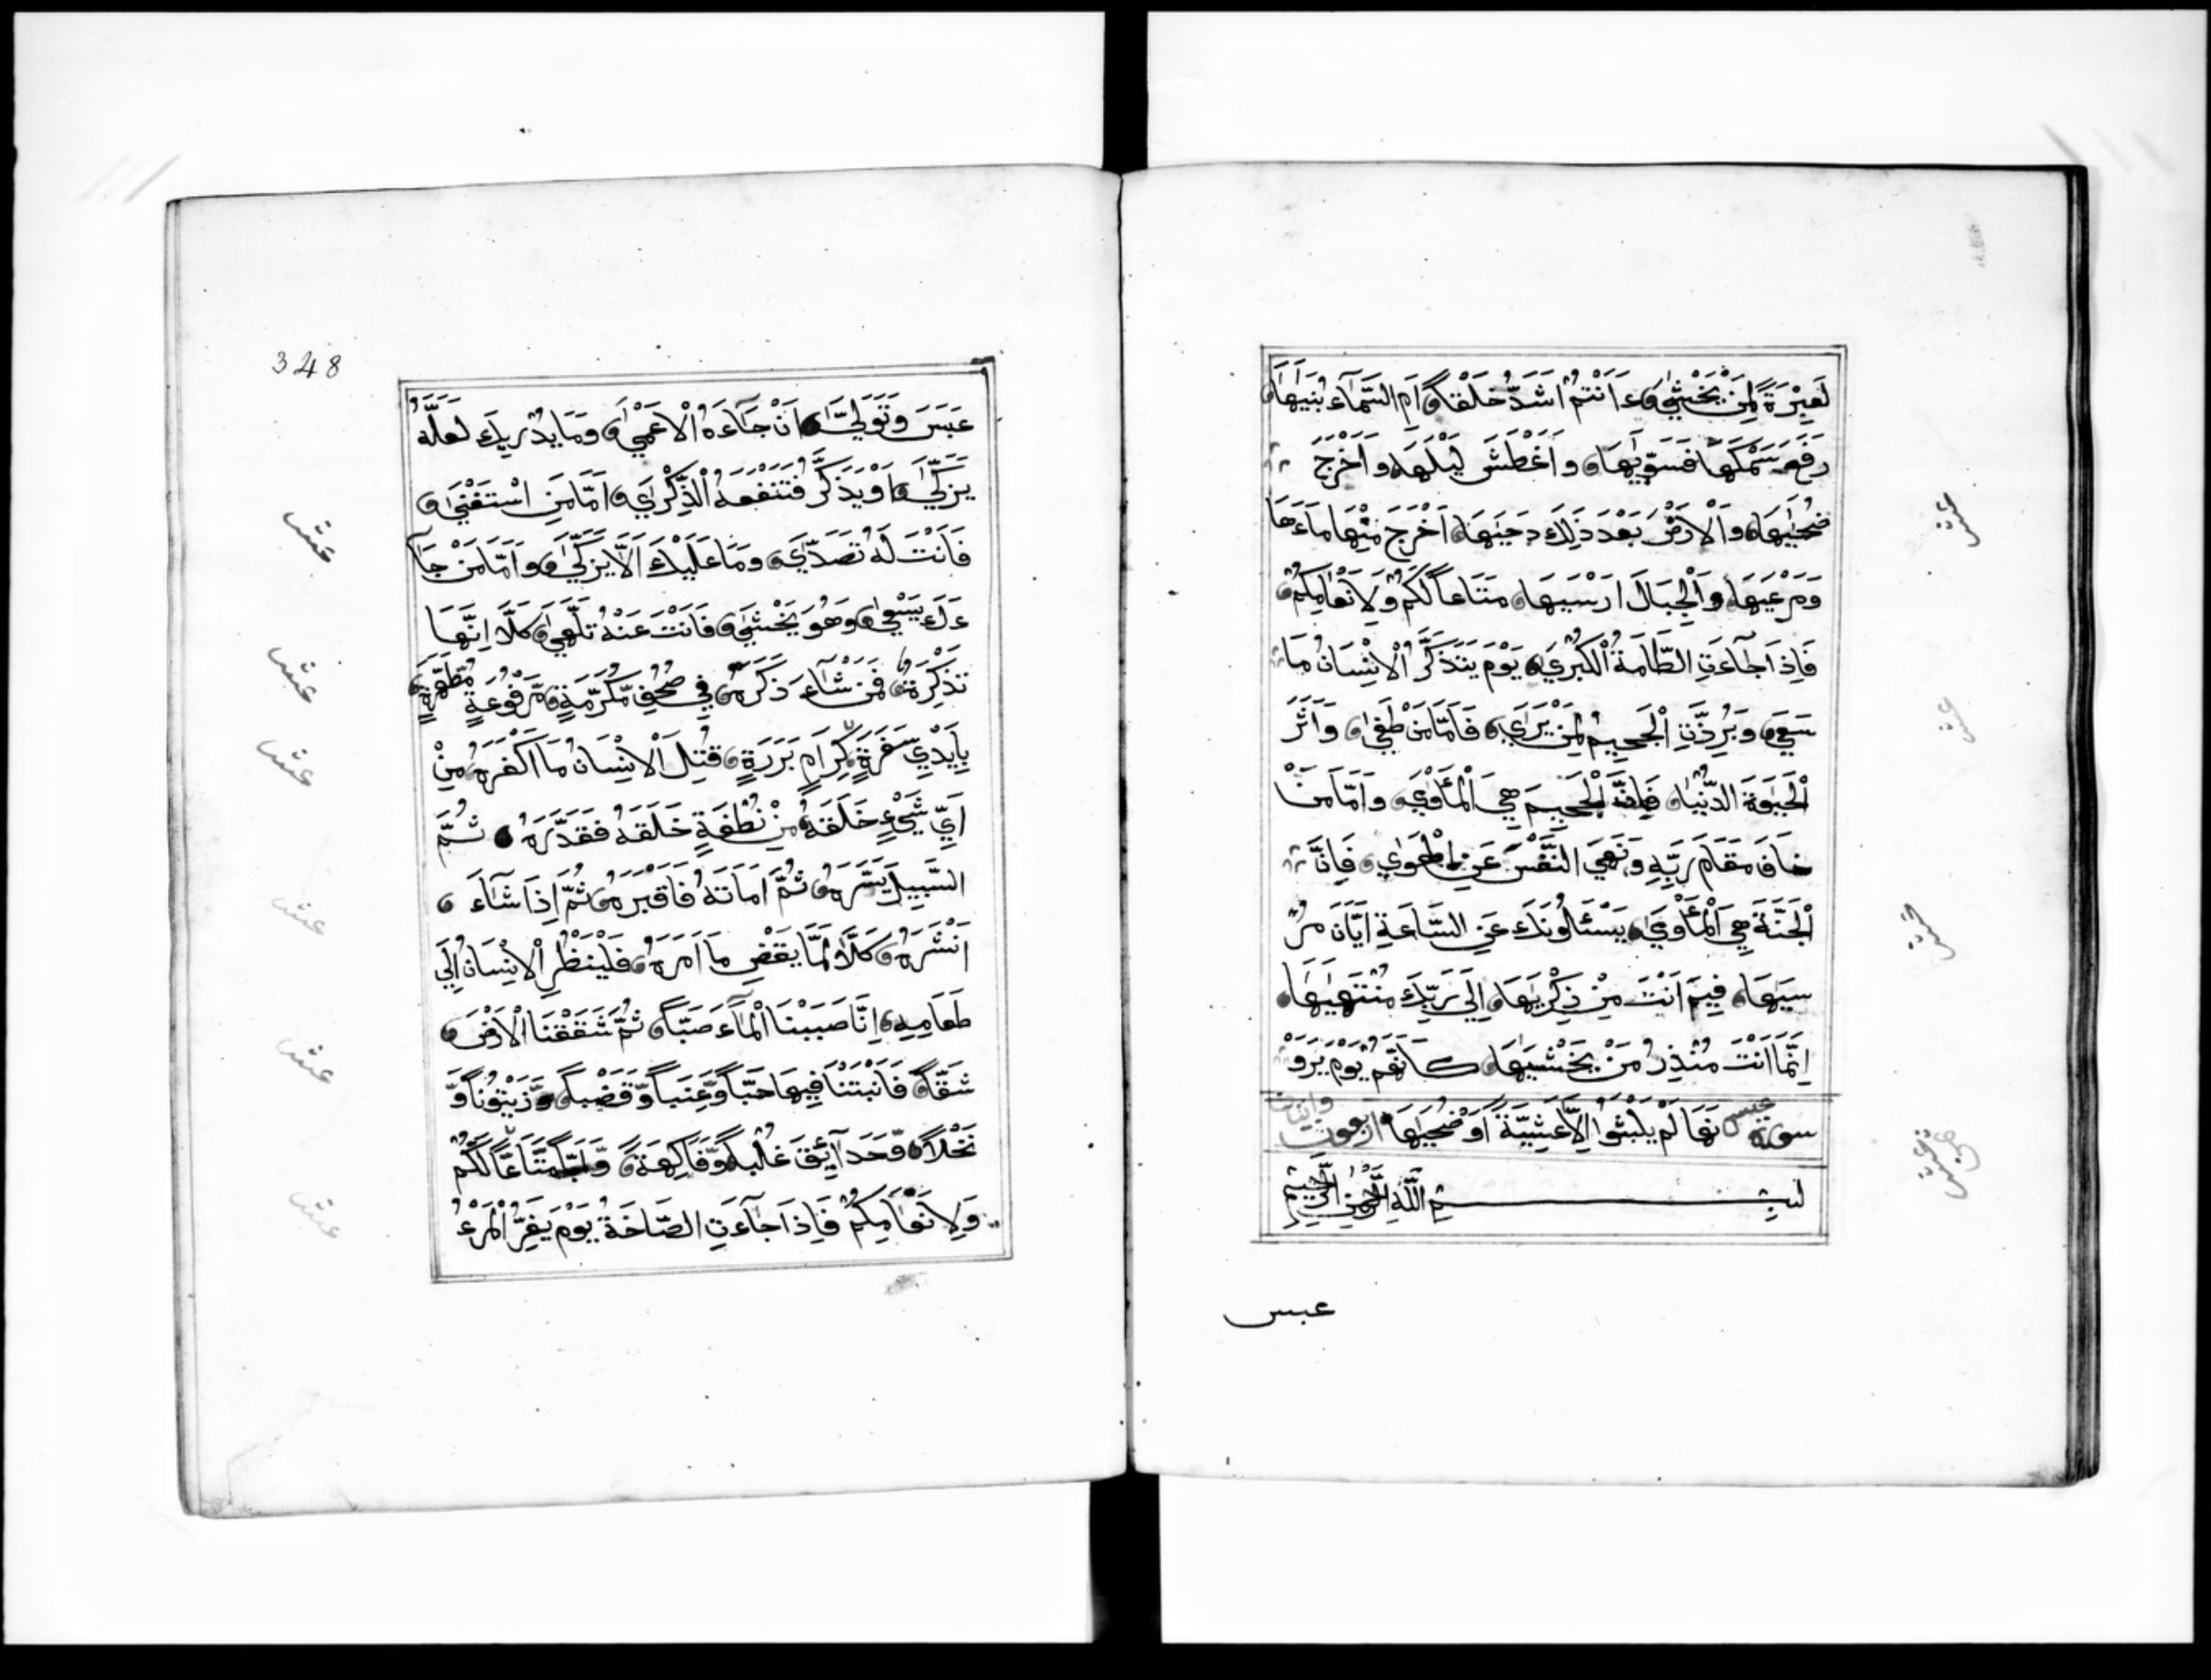 لَعِبْرَةً لِمَنْ يَخْشٰى ءَاَنْتُمْ اَشَدُّ خَلْقًا اَمِ السَّمَآءُ بَنٰيهَا
رَفَعَ سَمْكَهَا فَسَوّٰيهَا وَاَغْطَشَ لَيْلَهَا وَاَخْرَجَ
ضُحٰيهَا وَالْاَرْضَ بَعْدَ ذَلِكَ دَحٰيهَا اَخْرَجَ مِنْهَا مَاءَهَا
وَمَرْعٰيهَا وَالْجِبَالَ اَرْسٰيهَا مَتَاعًا لَكُمْ وَلِاَنْعَامِكُمْ
فَاِذَا جَآءَتِ الطَّامَّةُ الْكُبْرٰى يَوْمَ يَتَذَكَّرُ الْاِنْسَانُ مَا
سَعٰى وَبُرِّزَتِ الْجَحِيمُ لِمَنْ يَرٰى فَاَمَّا مَنْ طَغٰى وَاٰثَرَ
الْحَيٰوةَ الدُّنْيَا فَاِنَّ الْجَحِيمَ هِيَ الْمَأْوٰى وَاَمَّا مَنْ
خَافَ مَقَامَ رَبِّهِ وَنَهَى النَّفْسَ عَنِ الْهَوٰى فَاِنَّ
الْجَنَّةَ هِيَ الْمَأْوٰى يَسْئَلُونَكَ عَنِ السَّاعَةِ اَيَّانَ مُرْ
سٰيهَا فِيمَ اَنْتَ مِنْ ذِكْرٰيهَا اِلٰى رَبِّكَ مُنْتَهٰيهَا
اِنَّمَا اَنْتَ مُنْذِرُ مَنْ يَخْشٰيهَا كَاَنَّهُمْ يَوْمَ يَرَوْ
سورة عبس نَهَا لَمْ يَلْبَثُوا اِلَّا عَشِيَّةً اَوْ ضُحٰيهَا اربعون واثنان
بِسْمِ اللَّهِ الرَّحْمٰنِ الرَّحِيمِ
عبس
عشر
عشر
عشر
348
عَبَسَ وَتَوَلّٰى اَنْ جَآءَهُ الْاَعْمٰى وَمَا يُدْرِيكَ لَعَلَّهُ
يَزَّكّٰى اَوْ يَذَّكَّرُ فَتَنْفَعَهُ الذِّكْرٰى اَمَّا مَنِ اسْتَغْنٰى
فَاَنْتَ لَهُ تَصَدّٰى وَمَا عَلَيْكَ اَلَّا يَزَّكّٰى وَاَمَّا مَنْ جَآ
ءَكَ يَسْعٰى وَهُوَ يَخْشٰى فَاَنْتَ عَنْهُ تَلَهّٰى كَلَّا اِنَّهَا
تَذْكِرَةٌ فَمَنْ شَآءَ ذَكَرَهُ فِي صُحُفٍ مُكَرَّمَةٍ مَرْفُوعَةٍ مُطَهَّرَةٍ
بِاَيْدِي سَفَرَةٍ كِرَامٍ بَرَرَةٍ قُتِلَ الْاِنْسَانُ مَا اَكْفَرَهُ مِنْ
اَيِّ شَيْءٍ خَلَقَهُ مِنْ نُطْفَةٍ خَلَقَهُ فَقَدَّرَهُ ثُمَّ
السَّبِيلَ يَسَّرَهُ ثُمَّ اَمَاتَهُ فَاَقْبَرَهُ ثُمَّ اِذَا شَآءَ
اَنْشَرَهُ كَلَّا لَمَّا يَقْضِ مَا اَمَرَهُ فَلْيَنْظُرِ الْاِنْسَانُ اِلٰى
طَعَامِهِ اِنَّا صَبَبْنَا الْمَآءَ صَبًّا ثُمَّ شَقَقْنَا الْاَرْضَ
شَقًّا فَاَنْبَتْنَا فِيهَا حَبًّا وَعِنَبًا وَقَضْبًا وَزَيْتُونًا وَ
نَخْلًا وَحَدَآئِقَ غُلْبًا وَفَاكِهَةً وَاَبًّا مَتَاعًا لَكُمْ
وَلِاَنْعَامِكُمْ فَاِذَا جَآءَتِ الصَّاخَّةُ يَوْمَ يَفِرُّ الْمَرْءُ
عشر
عشر
عشر
عشر
عشر
عشر